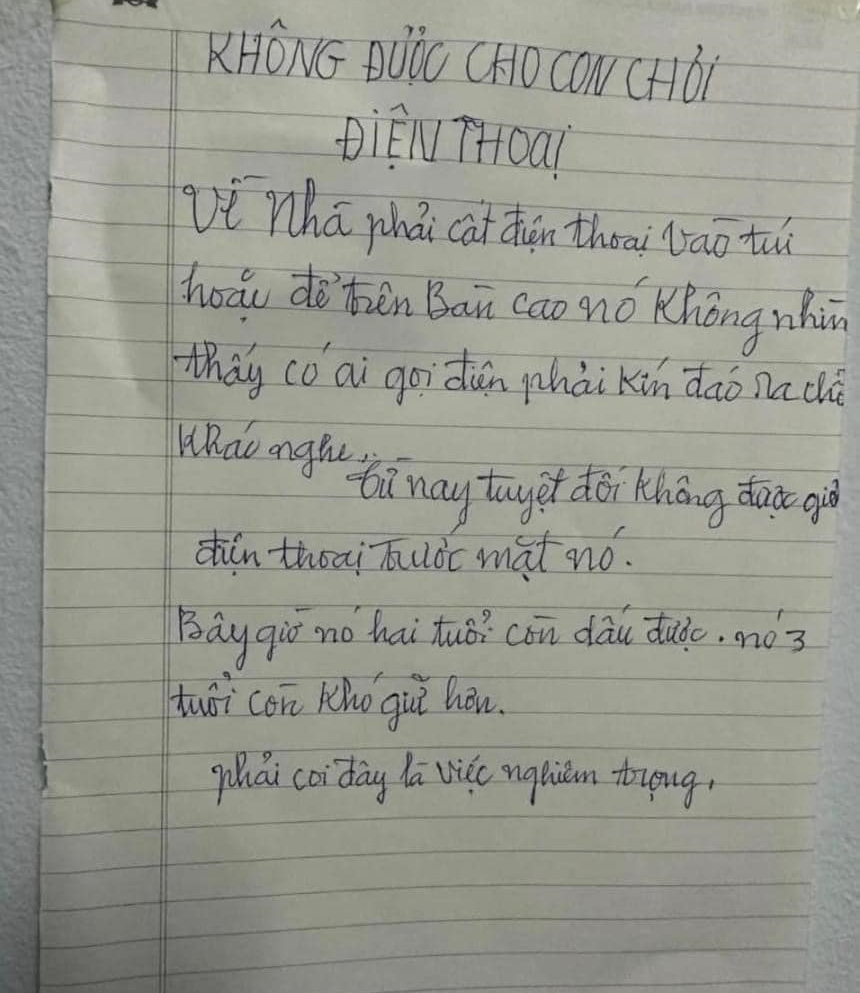 KHÔNG ĐƯỢC CHO CON CHƠI
ĐIỆN THOẠI
Về Nhà phải cất điện thoại vào túi
hoặc để trên Bàn cao nó Không nhìn
thấy có ai gọi điện phải kín đáo ra chỗ
Khác nghe..
từ nay tuyệt đối không được giở
điện thoại trước mặt nó.
Bây giờ nó hai tuổi còn dấu được. nó 3
tuổi còn khó giữ hơn.
phải coi đây là việc nghiêm trọng,